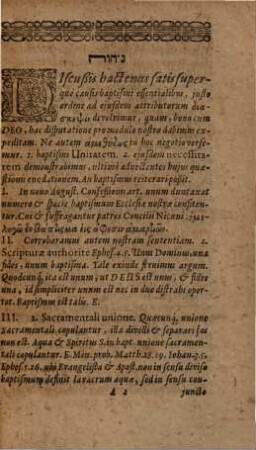 DIscussis hactenus satis super-
que causis baptismi essentialibus, justo
ordine ad ejusdem attributorum δια-
devolvimur, quam, bono cum
DEO, hac disputatione pro modulo nostro dabimus ex-
peditam. Ne autem in hoc negotio verse-
mur. 1. baptismi Unitatem. 2. ejusdem necessita-
tem demonstrabimus, ultimò advertentes hujus quæ-
stionis enodationem. An baptismus reiterari possit.
I. In nono August. Confessionis art. unum duntaxat
numero & specie baptismum Ecclesiæ nostræ confiten-
tur. Ceu & suffragantur patres Concilii Niceni:
II. Corroboramus autem nostram sententiam. 1.
Scripturæ authoritate Ephes. 4. 5. Unus Dominus, una
fides, unum baptisma. Tale exinde firmius argum.
Quodcunq́, ita est unum, ut DEUS est unus, & fides
una, id simpliciter unum est nec in duo distrahi opor-
tet. Baptismus est talis. E.
III. 2. Sacramentali unione. Quæcunq́, unione
sacramentali copulantur, ista divelli & separari fas
non est. Aqua & Spiritus S. in bapt. unione sacramen-
tali copulantur. E. Min. prob. Matth. 28. 19. Iohan. 3. 5.
Ephes. 5. 26. ubi Evangelista & Apost. non in sensu diviso
baptismum definit lavacrum aquæ, sed in sensu con-
A 2 juncto